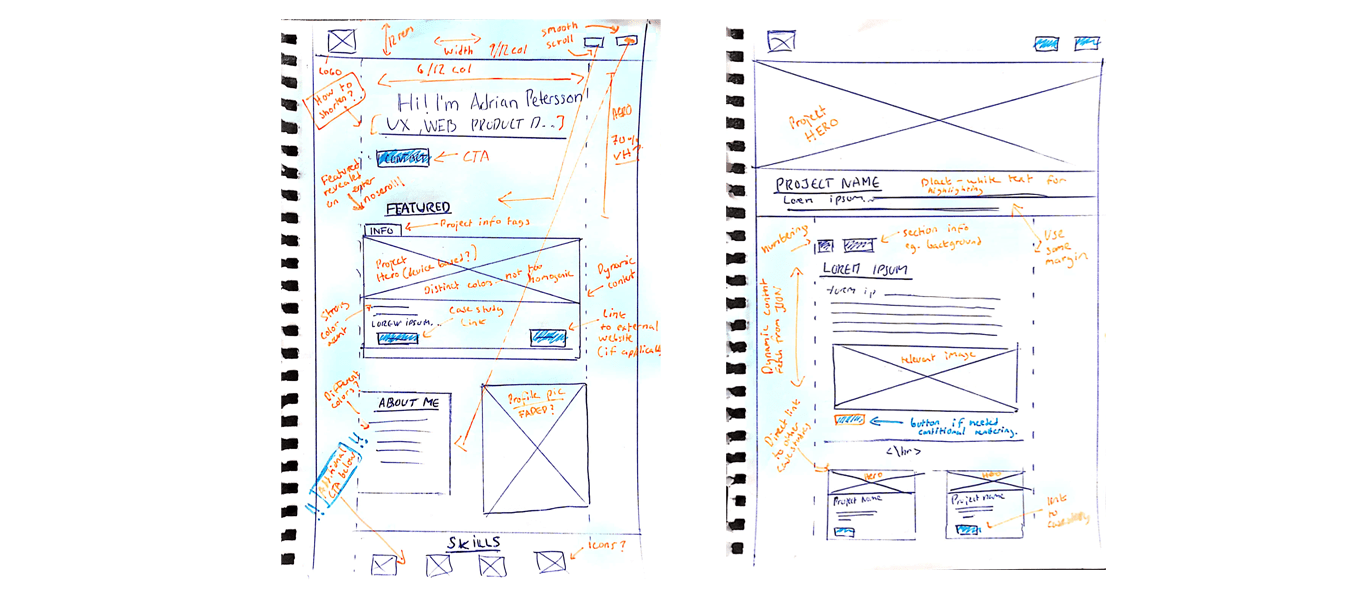 12 rem
width 9/12 col
smooth
scroll
LOGO
6/12 col
How to
shorten?
Hi! I'm Adrian Petersson
UX, WEB PRODUCT D...
HERO
70%
VH?
CONTACT
CTA
Featured
revealed
on
no scroll
FEATURED
INFO
Project info tags
Project
Hero (device based?)
Distinct colors - not too
homogenic
Dynamic
content
Strong
color
LOREM IPSUM...
Case study
Link
Link
to external
website
(if applicabl
Different
colors?
ABOUT ME
Profile pic
FADED?
!! Additional
CTA below !!
SKILLS
icons?
Project
HERO
PROJECT NAME
Black-white text for
highlighting
Lorem ipsum..
Use
same
margin
numbering
section info
e.g. background
LOREM IPSUM
Lorem ip
Dynamic content
fetch from JSON
relevant image
button if needed
conditional rendering.
Direct link
to other
case studies
<\hr>
Hero
Hero
Project Name
Project name
Link
to